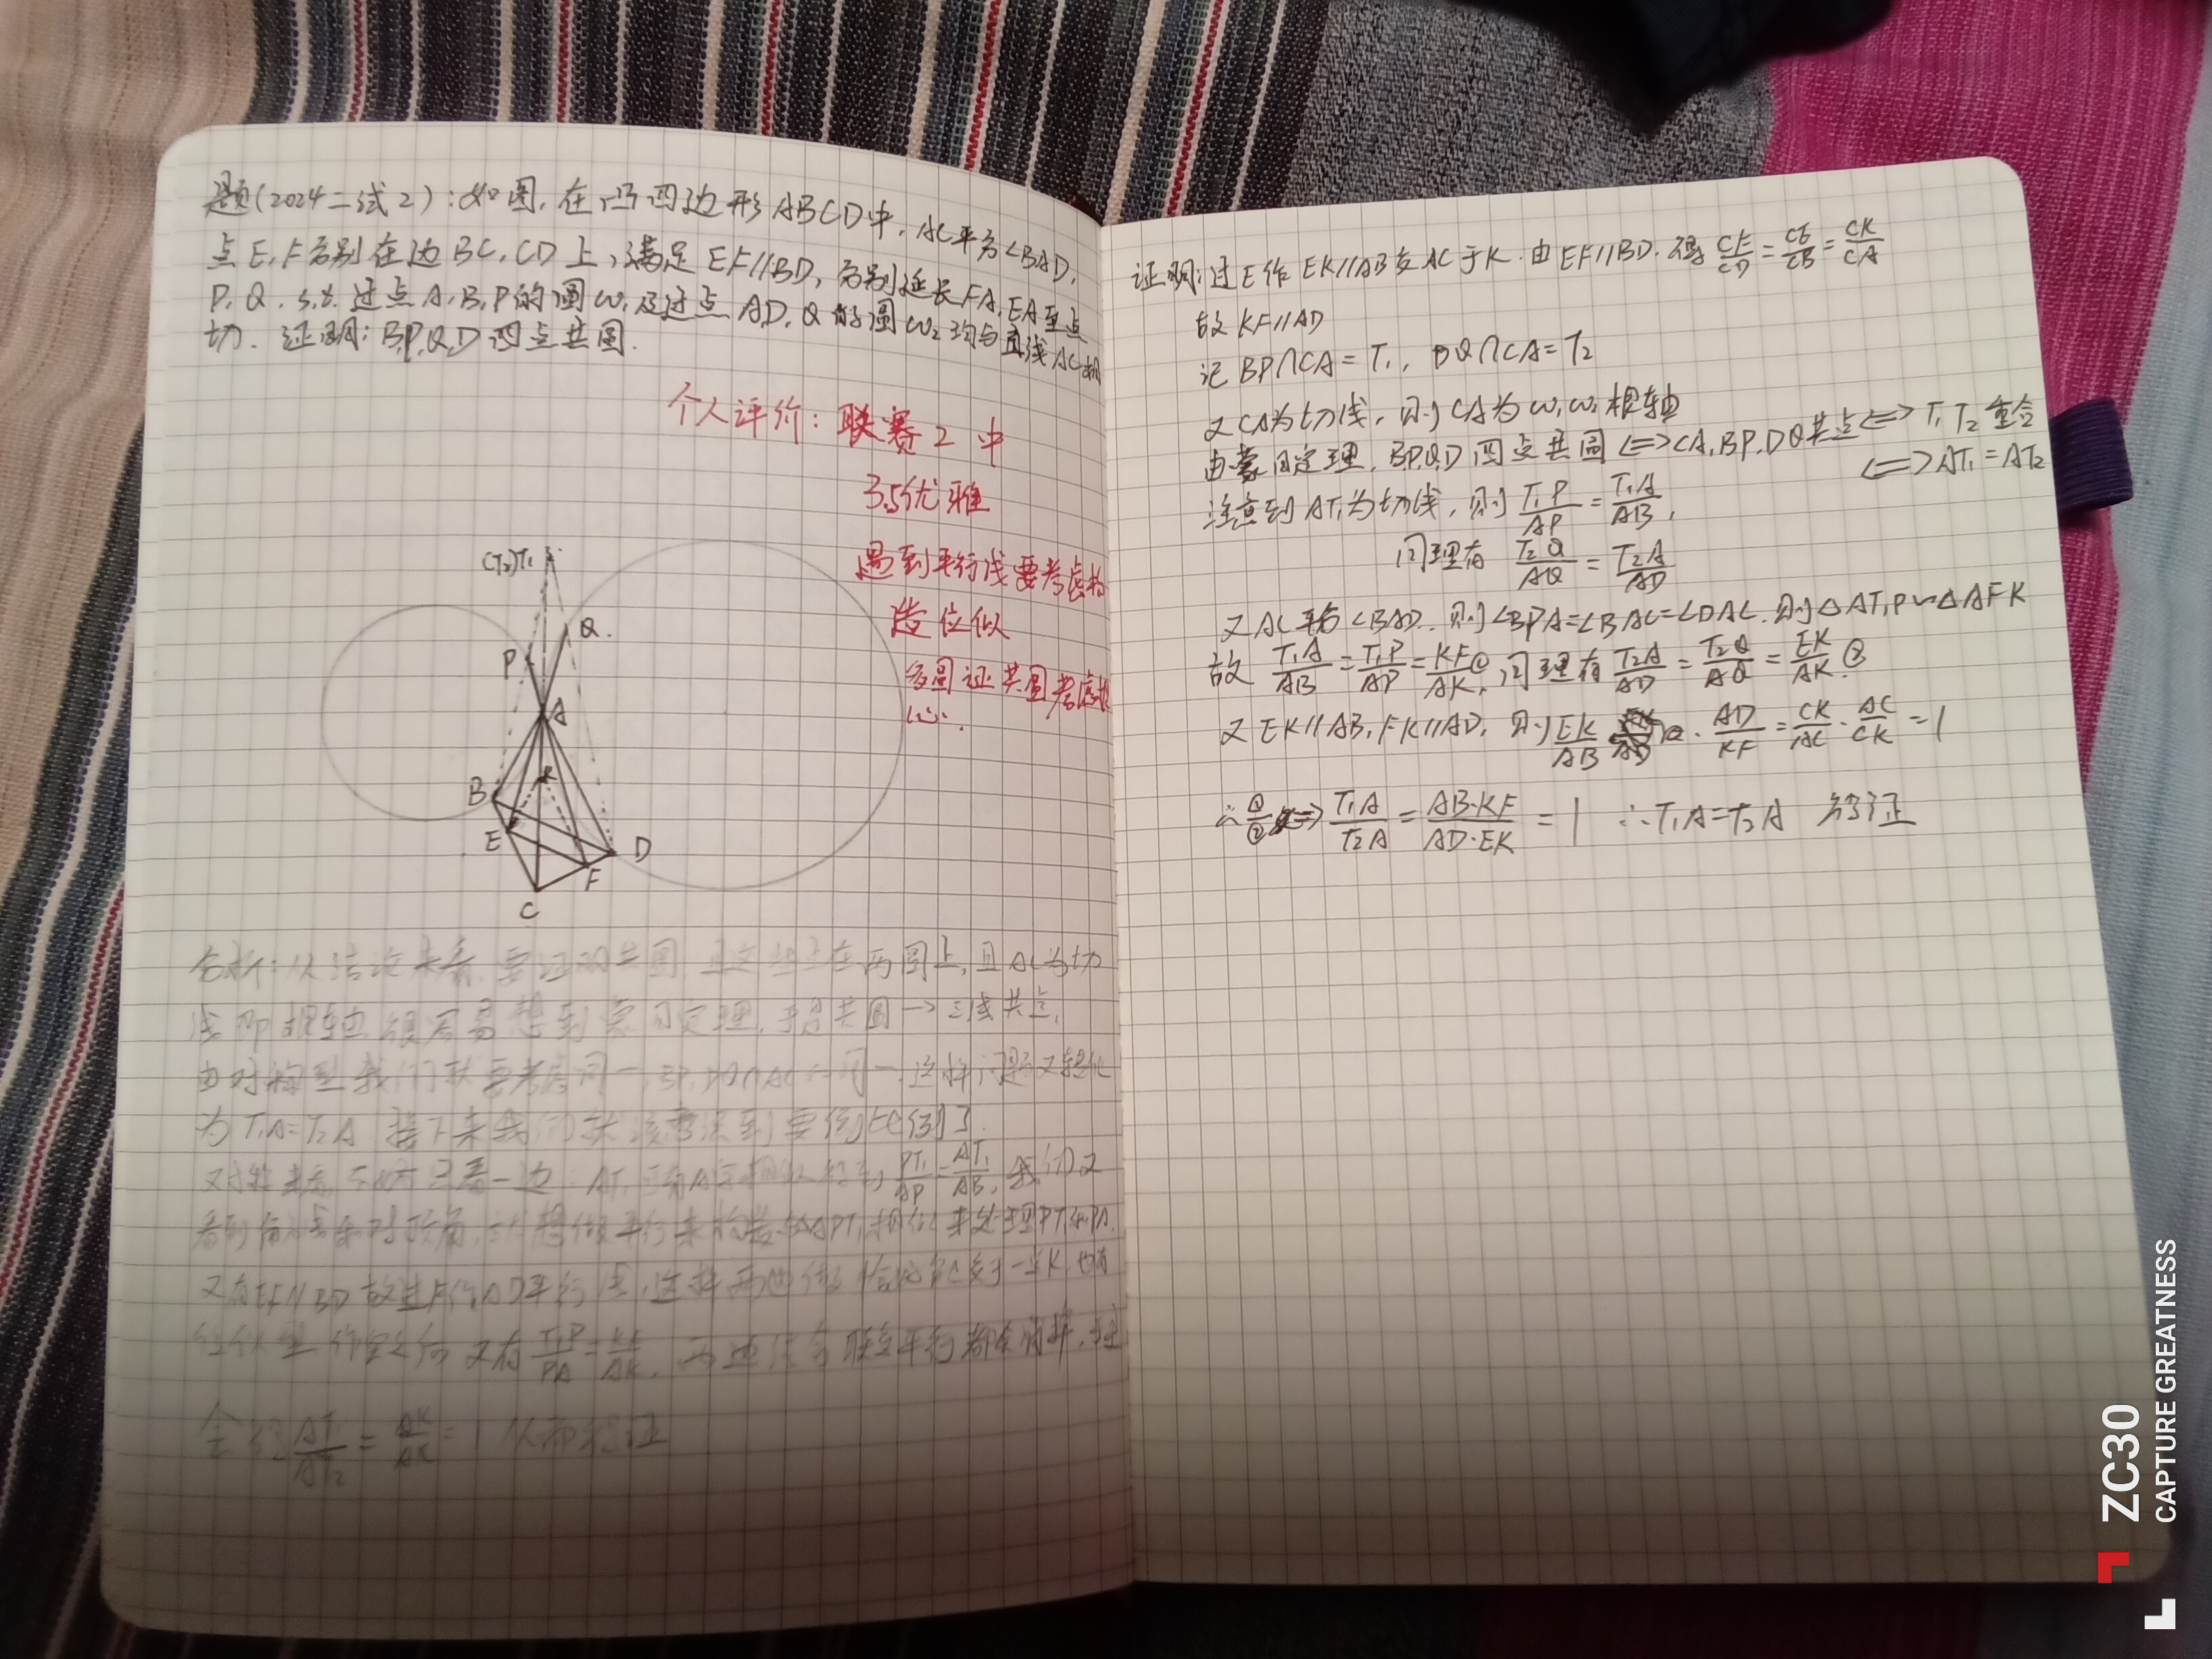 题(2024二试2):如图,在凸四边形ABCD中,AC平分∠BAD,
点E,F分别在边BC,CD上,满足EF//BD,分别延长FA,EA至点
P,Q,s.t.过点A,B,P的圆ω₁及过点A,D,Q的圆ω₂均与直线AC相
切.证明:B,P,Q,D四点共圆.
个人评价:联赛2中
3.5优雅
遇到平行线要考虑构
造位似
多圆证共圆考虑根
心.
(T₂)T₁
Q.
P
A
B
K
E
D
F
C
分析:从结论来看,要证明共圆,且这些点在两圆上,且AC为切
线即根轴很容易想到蒙日定理,于是共圆→三线共点,
由对称型我们就要考虑同一,BP,DQ∩AC 同一,这样问题又转化
为T₁A=T₂A 接下来我们就该考虑到要倒比例了.
又对称来看,不妨只看一边:AT₁ 相似得到 PT₁/AP=AT₁/AB,我们又
看到角 对顶角, 想做平行来构造与△APT₁相似来处理PT₁和PA.
又有EF//BD故过F作AD平行线,这样两边 交于一点K,也有
位似型 又有 T₁P/PA=KF/AK, 两边 平行 消掉,
会得 AT₁/AT₂=AK/AK=1 从而得证
证明:过E作EK//AB交AC于K.由EF//BD.得 CF/CD=CE/CB=CK/CA
故KF//AD
记BP∩CA=T₁, DQ∩CA=T₂
又CA为切线,则CA为ω₁,ω₂根轴
由蒙日定理,B,P,Q,D四点共圆⟺CA,BP,DQ共点⟺T₁T₂重合
⟺AT₁=AT₂
注意到AT₁为切线,则 T₁P/AP=T₁A/AB,
同理有 T₂Q/AQ=T₂A/AD
又AC平分∠BAD.则∠BPA=∠BAC=∠DAC.则△AT₁P∽△AFK
故 T₁A/AB=T₁P/AP=KF/AK①,同理有 T₂A/AD=T₂Q/AQ=EK/AK.②
又EK//AB,FK//AD,则 EK/AB·AD/KF=CK/AC·AC/CK=1
∴①/②⟹ T₁A/T₂A=AB·KF/AD·EK=1 ∴T₁A=T₂A 得证
ZC30
CAPTURE GREATNESS